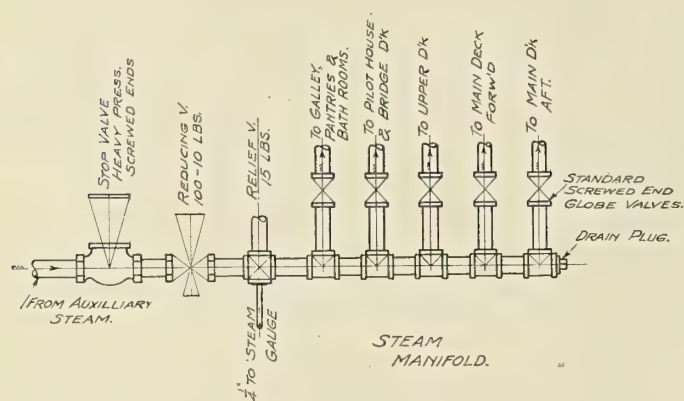 STOP VALVE
HEAVY PRESS.
SCREWED ENDS
REDUCING V.
100-10 LBS.
RELIEF V.
15 LBS.
TO GALLEY,
PANTRIES &
BATH ROOMS.
TO PILOT HOUSE
& BRIDGE D'K
TO UPPER D'K
TO MAIN DECK
FORW'D
TO MAIN D'K
AFT.
STANDARD
SCREWED END
GLOBE VALVES.
DRAIN PLUG.
FROM AUXILLIARY
STEAM.
1/4" TO STEAM
GAUGE
STEAM
MANIFOLD.